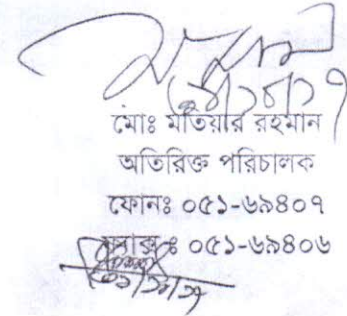 মোঃ মতিয়ার রহমান
অতিরিক্ত পরিচালক
ফোনঃ ০৫১-৬৯৪০৭
ফ্যাক্স ঃ ০৫১-৬৯৪০৬